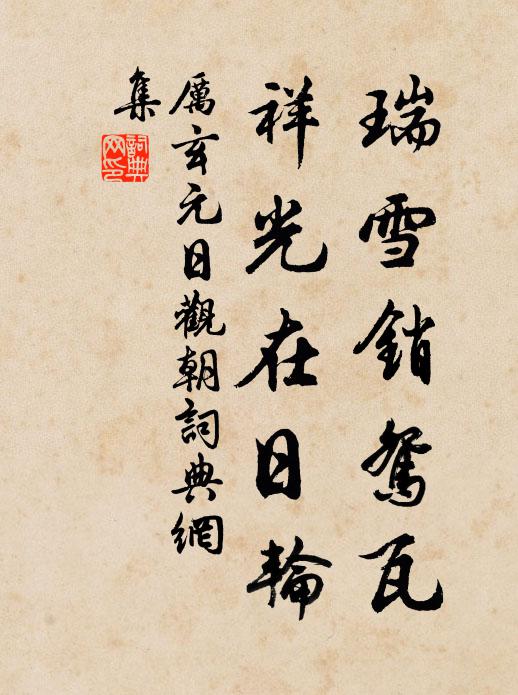 瑞雪銷鴛瓦
祥光在日輪
厲玄元日觀朝詞典網
集
詞典
网印